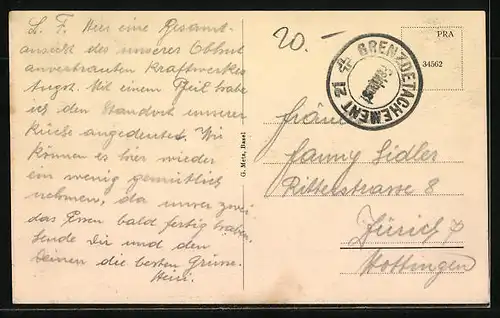 L. F. Hier eine Gesamt-
ansicht des unserer Obhut
anvertrauten Kraftwerkes
Augst. Mit einem Pfeil habe
ich den Standort unserer
Küche angedeutet. Wir
können es hier wieder
ein wenig gemütlich
nehmen, da unser
das Essen bald fertig haben.
Sende Dir und den
Deinen die besten Grüsse.
Heini.
G. Metz, Basel
20.-
GRENZDETACHEMENT 21
PRA
34562
Fräulein
Fanny Sidler
Ritterstrasse 8
Zürich 7
Hottingen